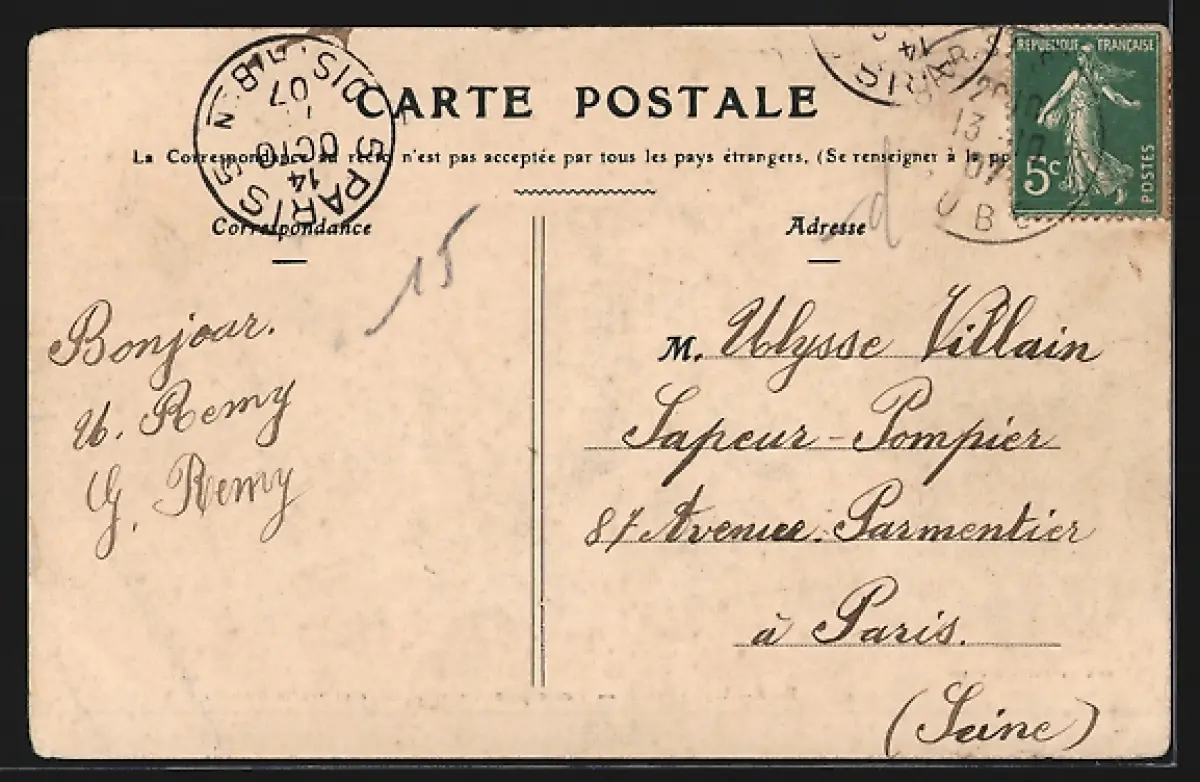 CARTE POSTALE
La Correspondance au recto n'est pas acceptée par tous les pays étrangers. (Se renseigner à la
Correspondance
Adresse
15
d
Bonjour.
U. Remy
G. Remy
M. Ulysse Villain
Sapeur-Pompier
87 Avenue. Parmentier
à Paris.
(Seine)
REPUBLIQUE FRANÇAISE
5c
POSTES
PARIS
14
OCT
07
DIS
14
13
07